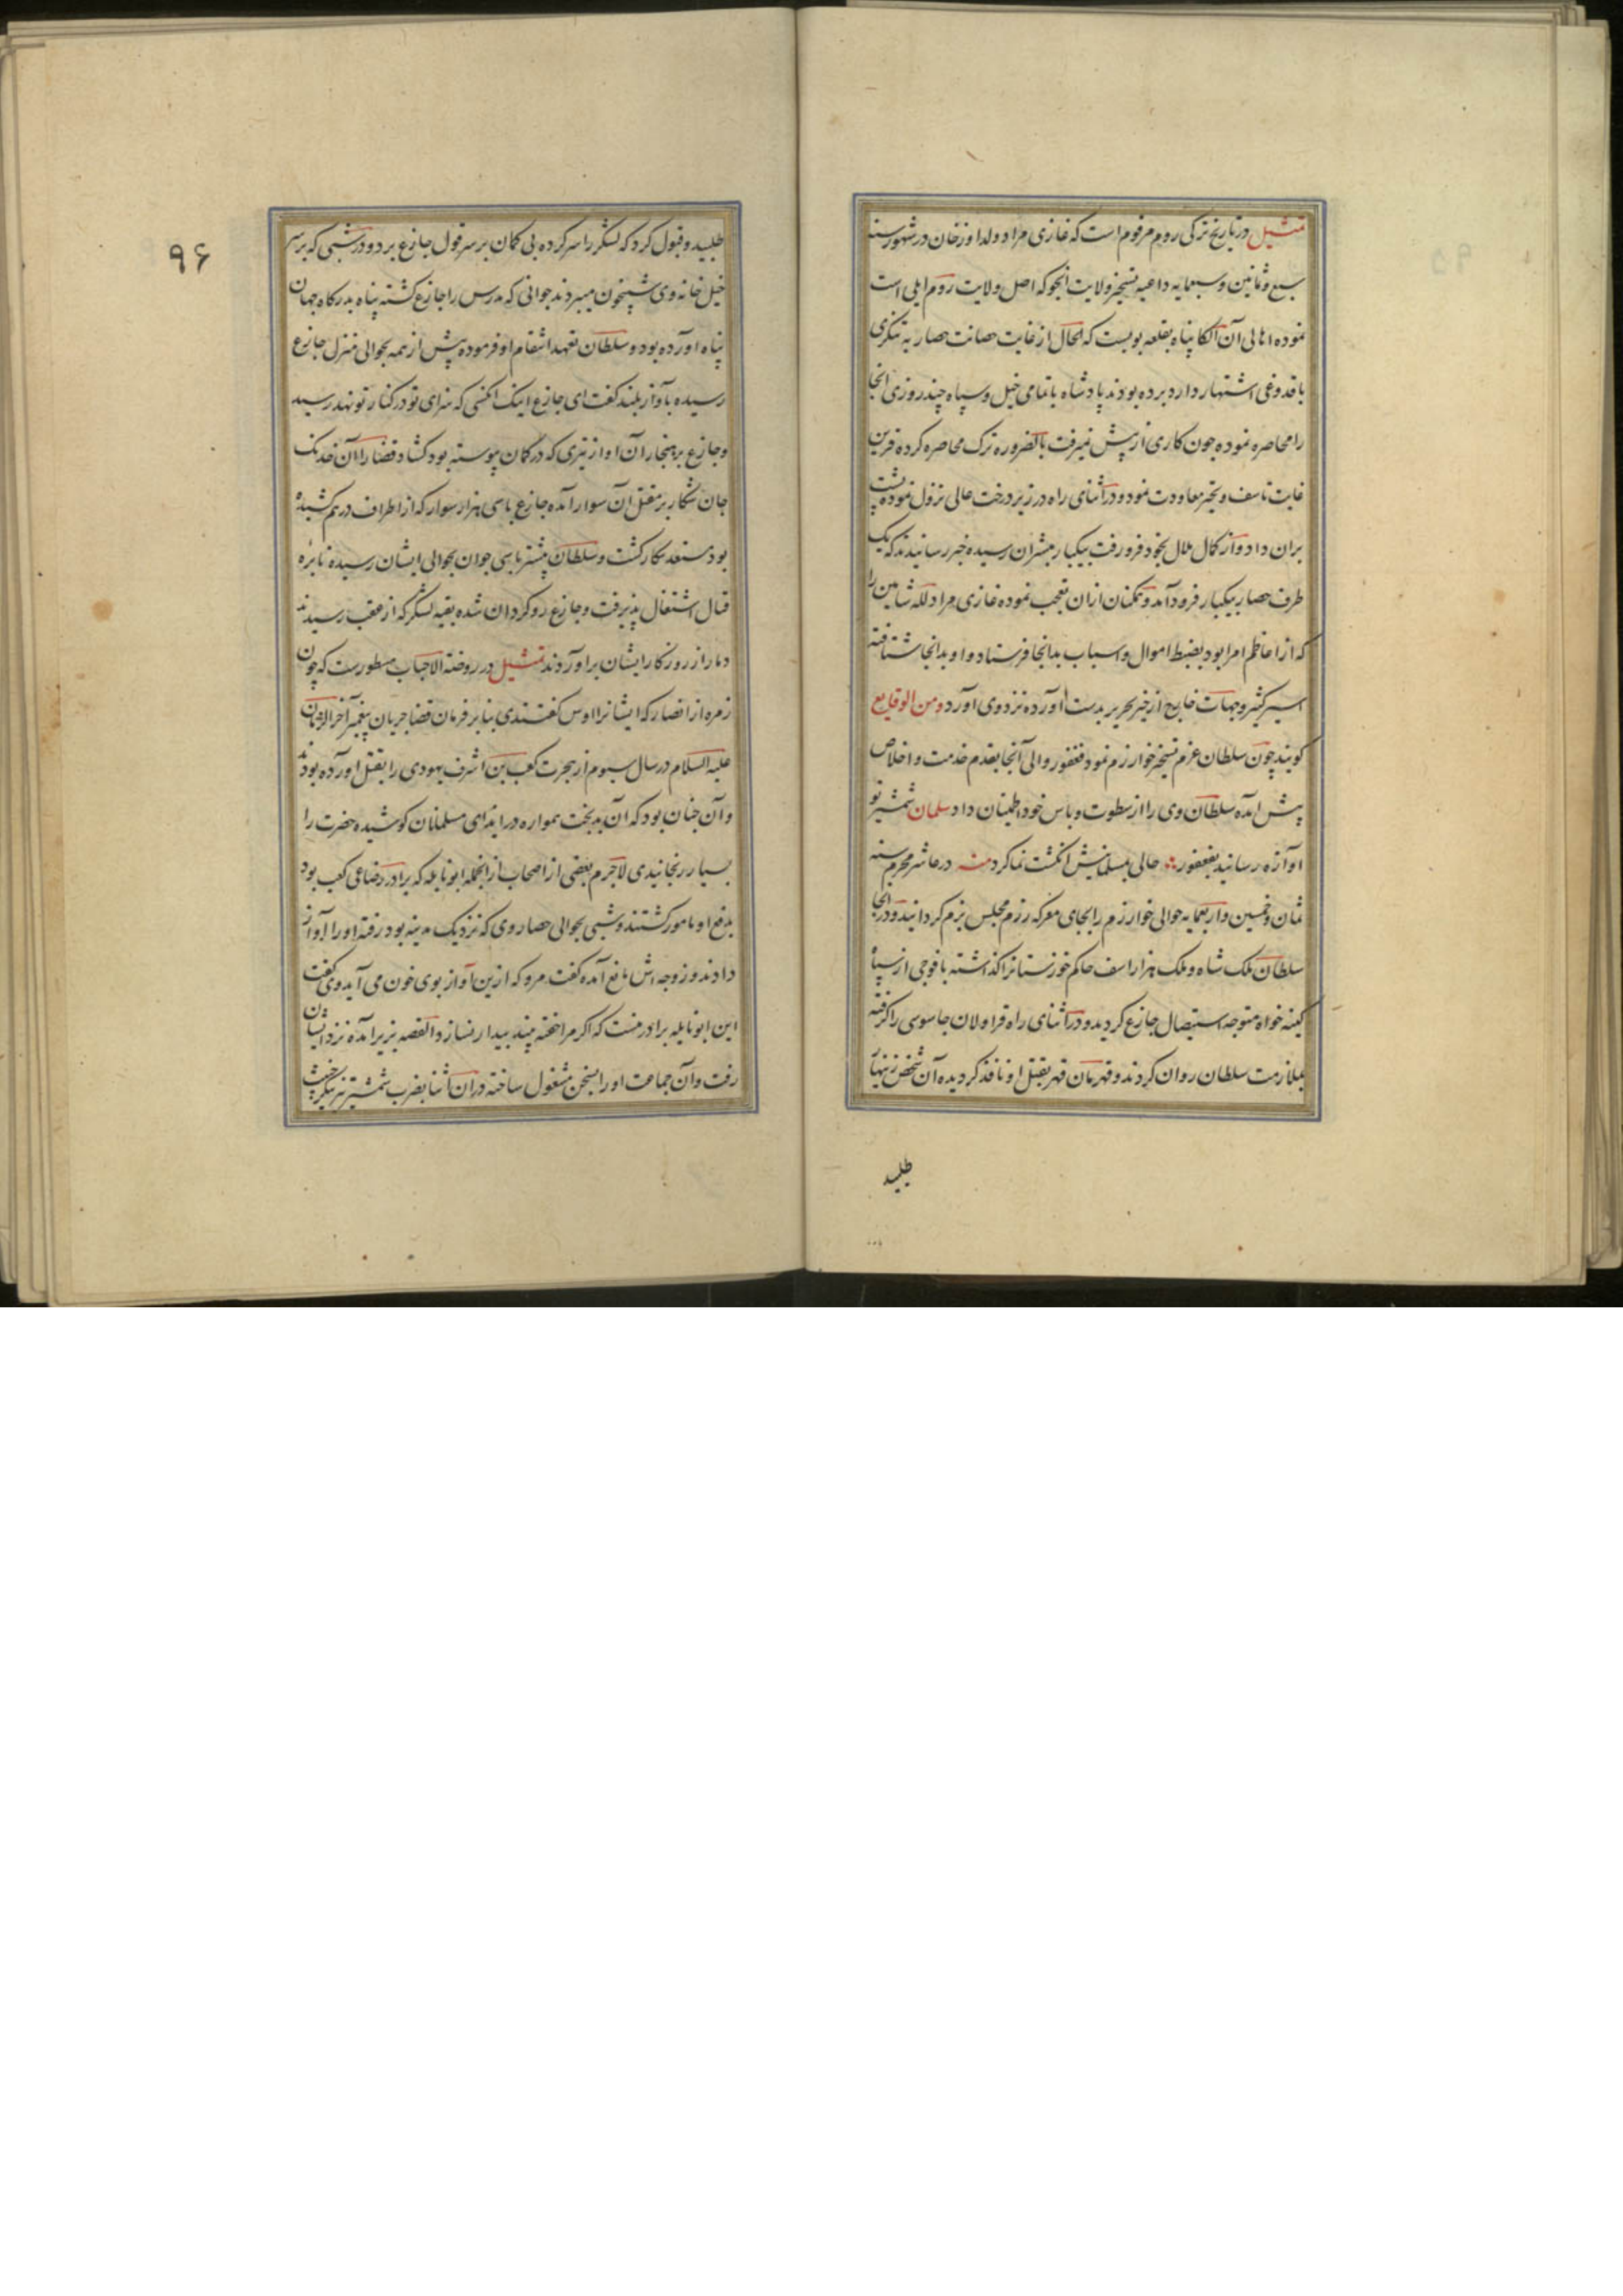 تمثیل در تاریخ ترکی روم مرقوم است که غازی مراد ولد اورخان در شهور سنه
سبع و ثمانین و سبعمایه داعیه تسخیر ولایت انجو که اصل ولایت روم ایلی است
نموده اهالی آن الکا پناه بقلعه بولست که الحال از غایت حصانت حصار به تنکری
باقدوغی اشتهار دارد برده بودند پادشاه با تمامی خیل و سپاه چند روزی انجا
را محاصره نموده چون کاری از پیش نمیرفت بالضروره ترک محاصره کرده قرین
غایت تاسف و تحیر معاودت نمود و در اثنای راه در زیر درخت عالی نزول نموده پشت
بران داد و از کمال ملال بخود فرو رفت بیکبار مبشران رسیده خبر رسانیدند که یک
طرف حصار بیکبار فرود آمد و همکنان ازان تعجب نموده غازی مراد لله شاهین را
که از اعاظم امرا بود بضبط اموال و اسباب بدانجا فرستاد و او بدانجا شتافته
اسیر کثیر و جهات خارج از حیز تحریر بدست آورده نزد وی آورد ومن الوقایع
کویند چون سلطان عزم تسخیر خوارزم نمود فغفور والی آنجا بقدم خدمت و اخلاص
پیش آمده سلطان وی را از سطوت و باس خود اطمینان داد سلمان شمشیر تو
آوازه رسانید بفغفور حالی بسلمانیش انکشت نما کرد منه در عاشر محرم سنه
ثمان و خمسین و اربعمایه حوالی خوارزم را بجای معرکه رزم مجلس بزم کردانید و در انجا
سلطان ملک شاه و ملک هزاراسف حاکم خوزستانرا کذاشته با فوجی از سپاه
کینه خواه متوجه استیصال جازغ کردید و در اثنای راه قراولان جاسوسی را کرفته
بملازمت سلطان روان کردند و قهرمان قهر بقتل او نافذ کردیده آن شخص زنهار
طلبید
۹۶
طلبید و قبول کرد که لشکر را سر کرده بی کمان بر سر قول جازغ برد و در شبی که بر سر
خیل خانه وی شبیخون میبردند جوانی که پدرس را جازغ کشته پناه بدرکاه جهان
پناه آورده بود و سلطان تعهد انتقام او فرموده پیش از همه بحوالی منزل جازغ
رسیده باواز بلند کفت ای جازغ اینک انکسی که سزای تو در کنار تو نهد رسید
و جازغ بر هنجار آن آواز تیری که در کمان پیوسته بود کشاد قضا را آن خدنک
جان شکار بر مقتل آن سوار آمده جازغ با سی هزار سوار که از اطراف در هم کشیده
بود مستعد پیکار کشت و سلطان پیشتر با سی جوان بحوالی ایشان رسیده نایره
قتال اشتغال پذیرفت و جازغ رو کردان شده بقیه لشکر که از عقب رسیدند
دمار از روزکار ایشان براوردند تمثیل در روضة الاحباب مسطورست که چون
زمره از انصار که ایشانرا اوس کفتندی بنابر فرمان قضا جریان پیغمبر آخر الزمان
علیه السلام در سال سیوم از هجرت کعب بن اشرف یهودی را بقتل آورده بودند
و آن چنان بود که آن بدبخت همواره در ایذای مسلمانان کوشیده حضرت را
بسیار رنجانیدی لاجرم بعضی از اصحاب از انجمله ابو نایله که برادر رضاعی کعب بود
بدفع او مامور کشتند و شبی بحوالی حصار وی که نزدیک مدینه بود رفته او را آواز
دادند و زوجه اش مانع آمده کفت مرو که ازین آواز بوی خون می آید وی کفت
این ابو نایله برادر منست که اکر مرا خفته بیند بیدار نسازد القصه بزیر آمده نزد ایشان
رفت و آن جماعت او را بسخن مشغول ساخته دران اثنا بضرب شمشیر تیز پیکر خبیث